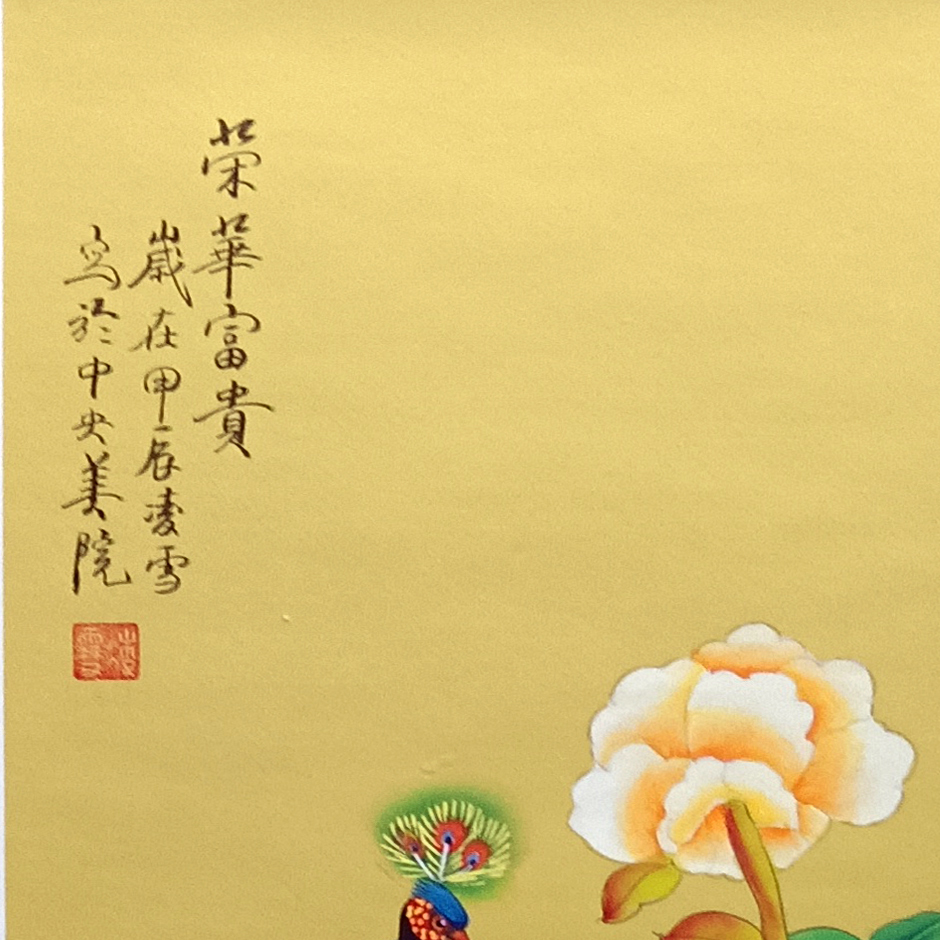 荣華富貴
歲在甲辰凌雪
写於中央美院